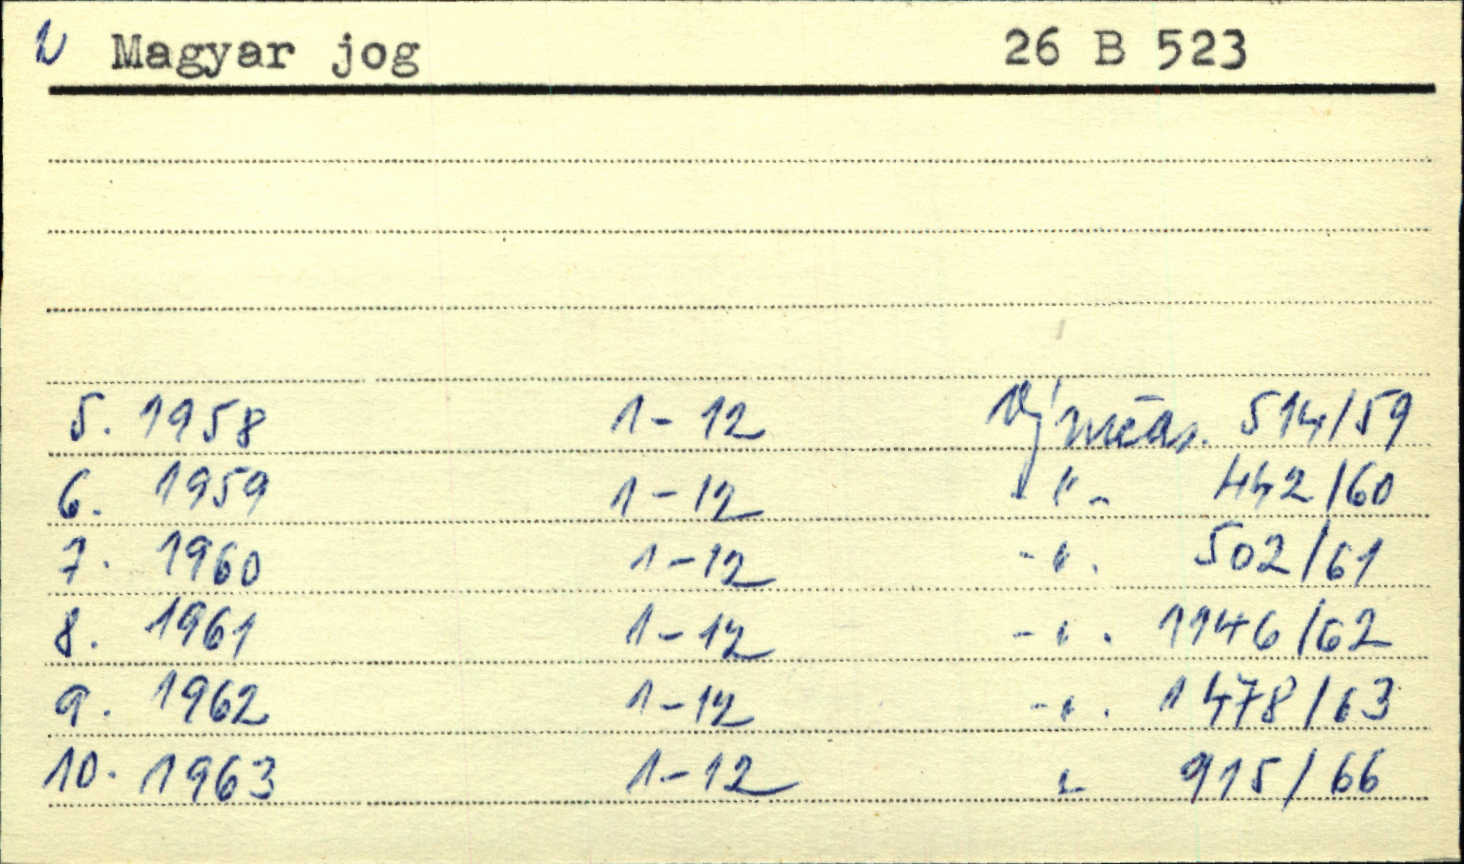 2 Magyar jog 26 B 523
5. 1958 1-12 514/59
6. 1959 1-12 - " - 442/60
7. 1960 1-12 - " - 502/61
8. 1961 1-12 - " - 1146/62
9. 1962 1-12 - " - 1478/63
10. 1963 1-12 " 915/66